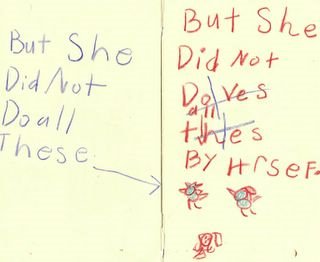 But She
Did Not
Do all
These
But She
Did Not
Do Ves
all
thes
BY Hrsef.